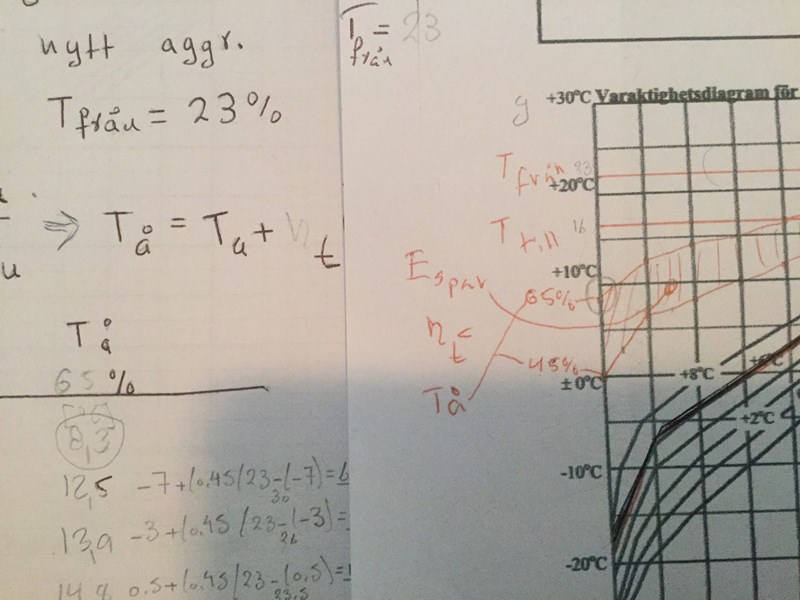 nytt aggr.
T från = 23%
⇒ Tå = Tu + η t
Tå
65%
8,3
12,5 -7+(0.45(23-(-7)=6
30
13,9 -3+(0.45(23-(-3)=
26
14,9 0.5+(0.45(23-(0.5)=
23,5
från = 23
+30°C Varaktighetsdiagram för
T från 23
+20°C
T till 16
+10°C
E spar
65%
ηt
45%
Tå
±0°C
+8°C
+6°C
+2°C
-10°C
-20°C